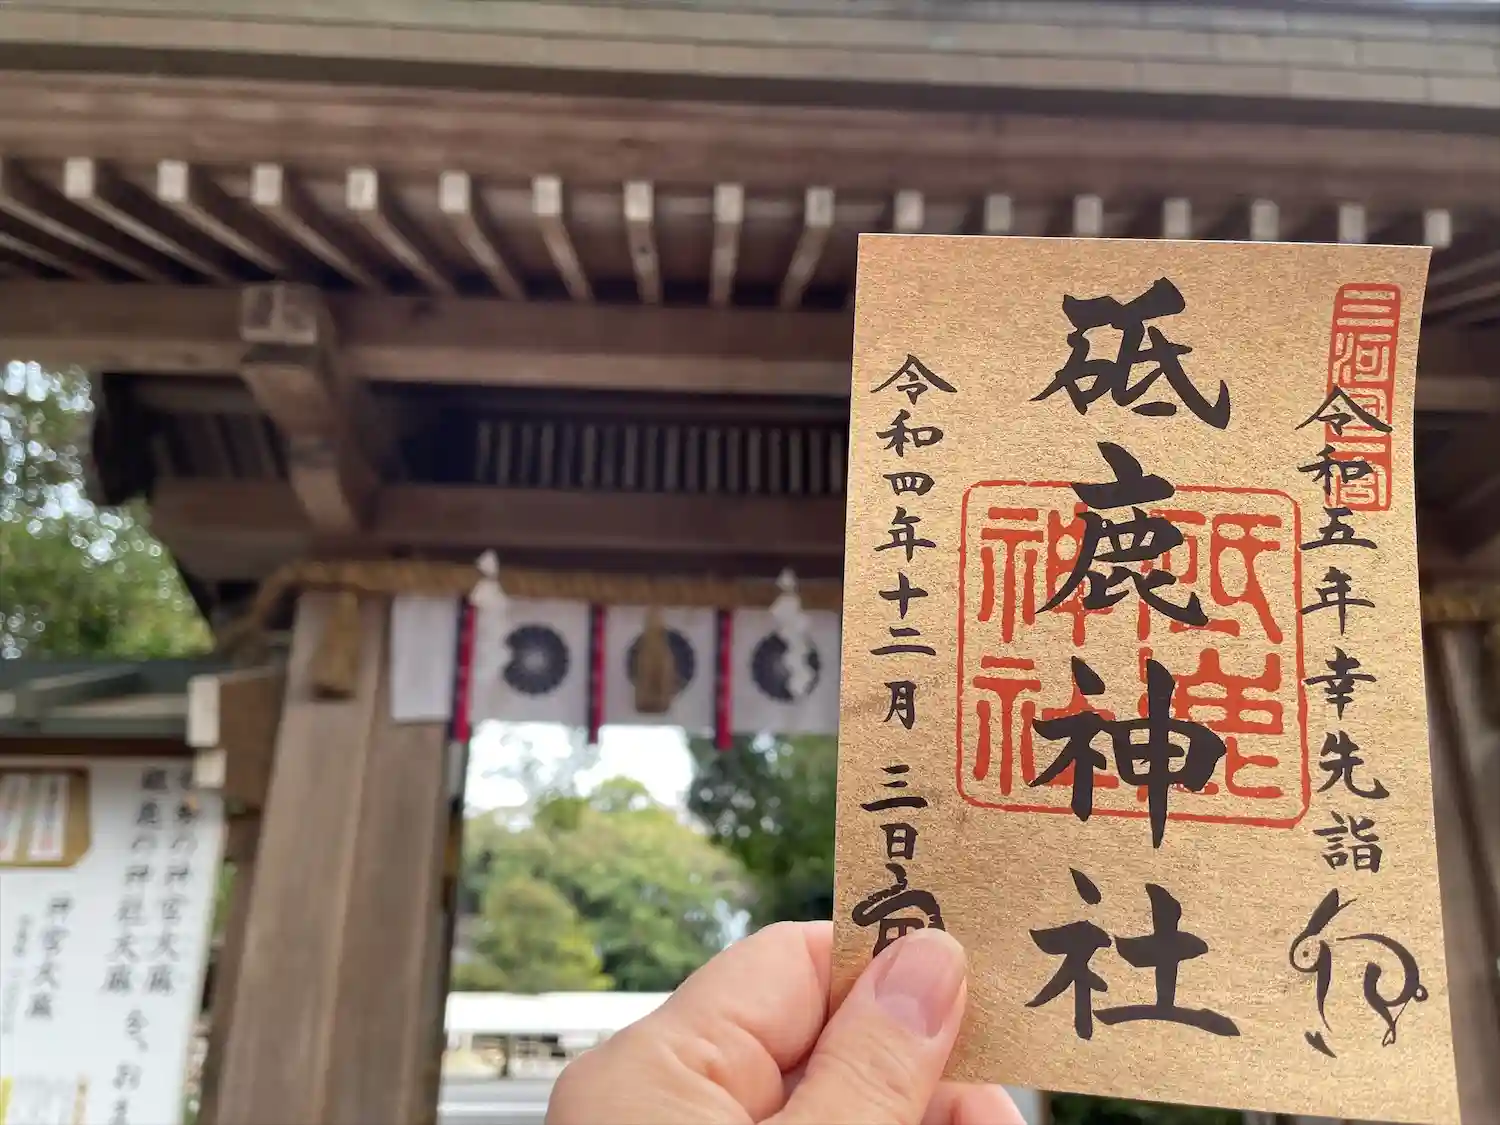 三河国一宮
令和五年幸先詣
卯
砥鹿神社
砥鹿神社
令和四年十二月三日
神宮大麻
砥鹿の神社大麻
神宮大麻